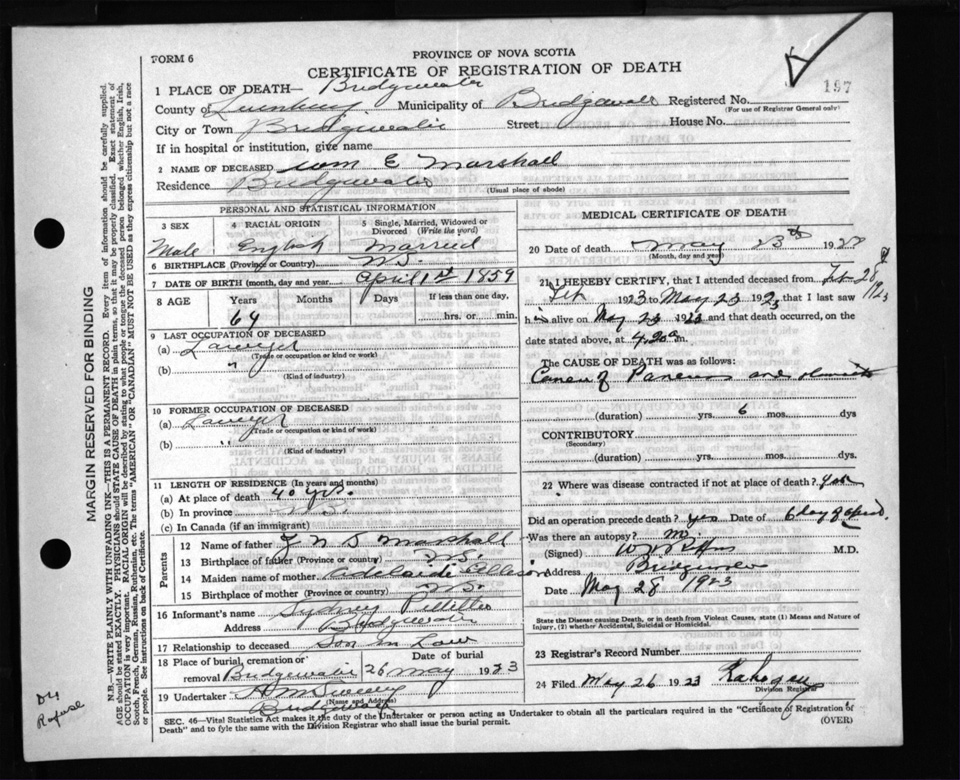 FORM 6
PROVINCE OF NOVA SCOTIA
CERTIFICATE OF REGISTRATION OF DEATH
197
1 PLACE OF DEATH— Bridgewater
County of Lunenburg Municipality of Bridgewater Registered No.
(For use of Registrar General only)
City or Town Bridgewater Street House No.
If in hospital or institution, give name
2 NAME OF DECEASED Wm E Marshall
Residence Bridgewater
(Usual place of abode)
PERSONAL AND STATISTICAL INFORMATION
3 SEX 4 RACIAL ORIGIN 5 Single, Married, Widowed or Divorced (Write the word)
Male English Married
6 BIRTHPLACE (Province or Country) N.S.
7 DATE OF BIRTH (month, day and year) April 1st 1859
8 AGE Years Months Days If less than one day,
64 hrs. or min.
9 LAST OCCUPATION OF DECEASED
(a) Lawyer
(Trade or occupation or kind of work)
(b) "
(Kind of industry)
10 FORMER OCCUPATION OF DECEASED
(a) Lawyer
(Trade or occupation or kind of work)
(b) "
(Kind of industry)
11 LENGTH OF RESIDENCE (In years and months)
(a) At place of death 40 yrs.
(b) In province N.S.
(c) In Canada (if an immigrant)
Parents
12 Name of father J N S Marshall
13 Birthplace of father (Province or country) N.S.
14 Maiden name of mother Adelaide
15 Birthplace of mother (Province or country) N.S.
16 Informant's name Sydney
Address Bridgewater
17 Relationship to deceased Son in Law
18 Place of burial, cremation or removal Bridgewater Date of burial 26 May 1923
19 Undertaker
(Name and Address)
Bridgewater
MEDICAL CERTIFICATE OF DEATH
20 Date of death May 23rd 192
(Month, day and year)
21 I HEREBY CERTIFY, that I attended deceased from Feb 28 1923
Feb 1923 to May 23 1923, that I last saw
his alive on May 23 1923 and that death occurred, on the
date stated above, at 4.20 a.m.
The CAUSE OF DEATH was as follows:
Cancer of Pancreas and
(duration) yrs. 6 mos. dys
CONTRIBUTORY
(Secondary)
(duration) yrs. mos. dys.
22 Where was disease contracted if not at place of death?
Did an operation precede death? yes Date of 6 day of April
Was there an autopsy? no
(Signed) M.D.
Address Bridgewater
Date May 28 1923
State the Disease causing Death, or in Death from Violent Causes, state (1) Means and Nature of Injury, (2) whether Accidental, Suicidal or Homicidal.
23 Registrar's Record Number
24 Filed May 26 1923
Division Registrar
SEC. 46—Vital Statistics Act makes it the duty of the Undertaker or person acting as Undertaker to obtain all the particulars required in the "Certificate of Registration of Death" and to fyle the same with the Division Registrar who shall issue the burial permit.
(OVER)
MARGIN RESERVED FOR BINDING
N.B.—WRITE PLAINLY WITH UNFADING INK—THIS IS A PERMANENT RECORD. Every item of information should be carefully supplied.
AGE should be stated EXACTLY. PHYSICIANS should STATE CAUSE OF DEATH in plain terms, so that it may be properly classified. Exact statement of
OCCUPATION is very important. RACIAL ORIGIN will be described by stating to what people or tongue the deceased person belonged whether English, Irish,
Scotch, French, German, Russian, Ruthenian, etc. The terms "AMERICAN" or "CANADIAN" MUST NOT BE USED as they express citizenship but not a race
or people. See instructions on back of Certificate.
Refuse